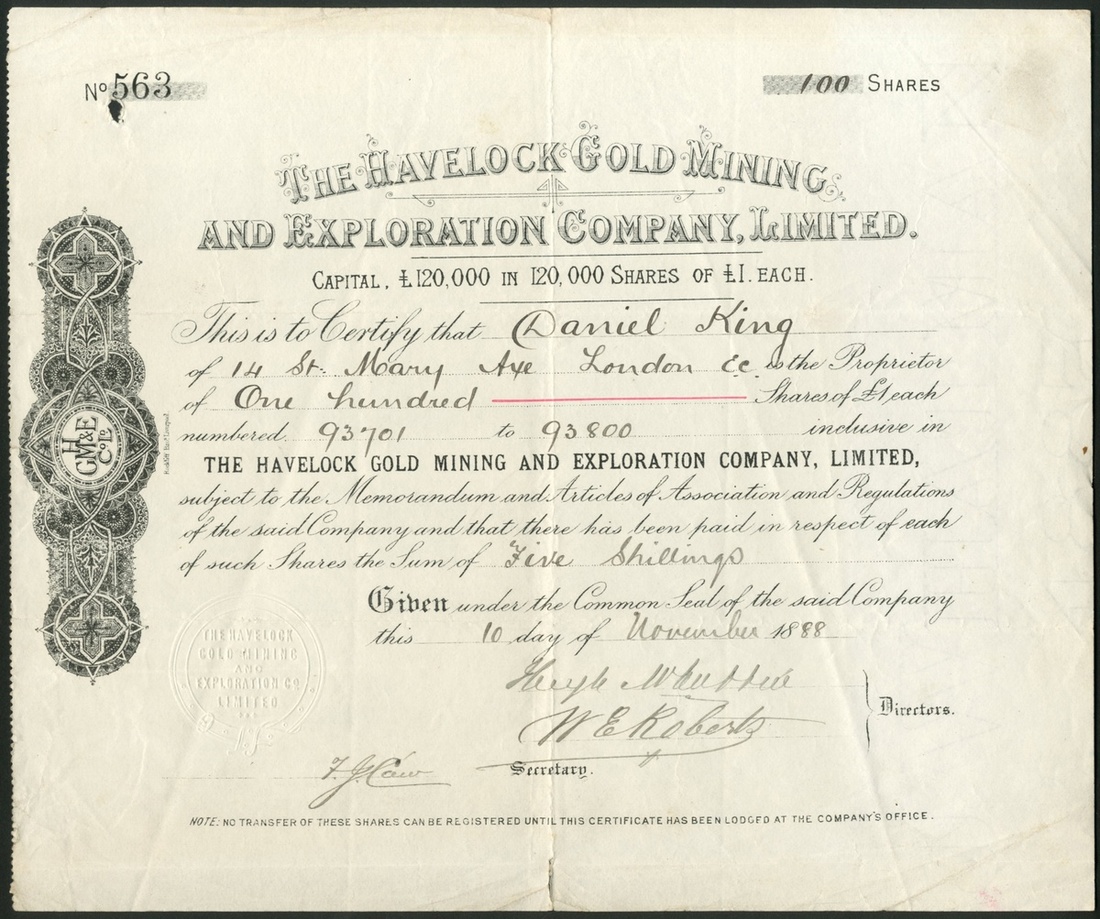 No 563
100 SHARES
THE HAVELOCK GOLD MINING
AND EXPLORATION COMPANY, LIMITED.
CAPITAL, £120,000 IN 120,000 SHARES OF £1. EACH.
This is to Certify that Daniel King
of 14 St. Mary Axe London Ec is the Proprietor
of One hundred Shares of £1 each
numbered 93701 to 93800 inclusive in
THE HAVELOCK GOLD MINING AND EXPLORATION COMPANY, LIMITED,
subject to the Memorandum and Articles of Association and Regulations
of the said Company and that there has been paid in respect of each
of such Shares the Sum of Five Shillings
Given under the Common Seal of the said Company
this 10 day of November 1888
Hugh
W E Roberts
Directors.
F. J.
Secretary.
NOTE: NO TRANSFER OF THESE SHARES CAN BE REGISTERED UNTIL THIS CERTIFICATE HAS BEEN LODGED AT THE COMPANY'S OFFICE.
H
GM&E
Co Ld
THE HAVELOCK
GOLD MINING
AND
EXPLORATION CO.
LIMITED